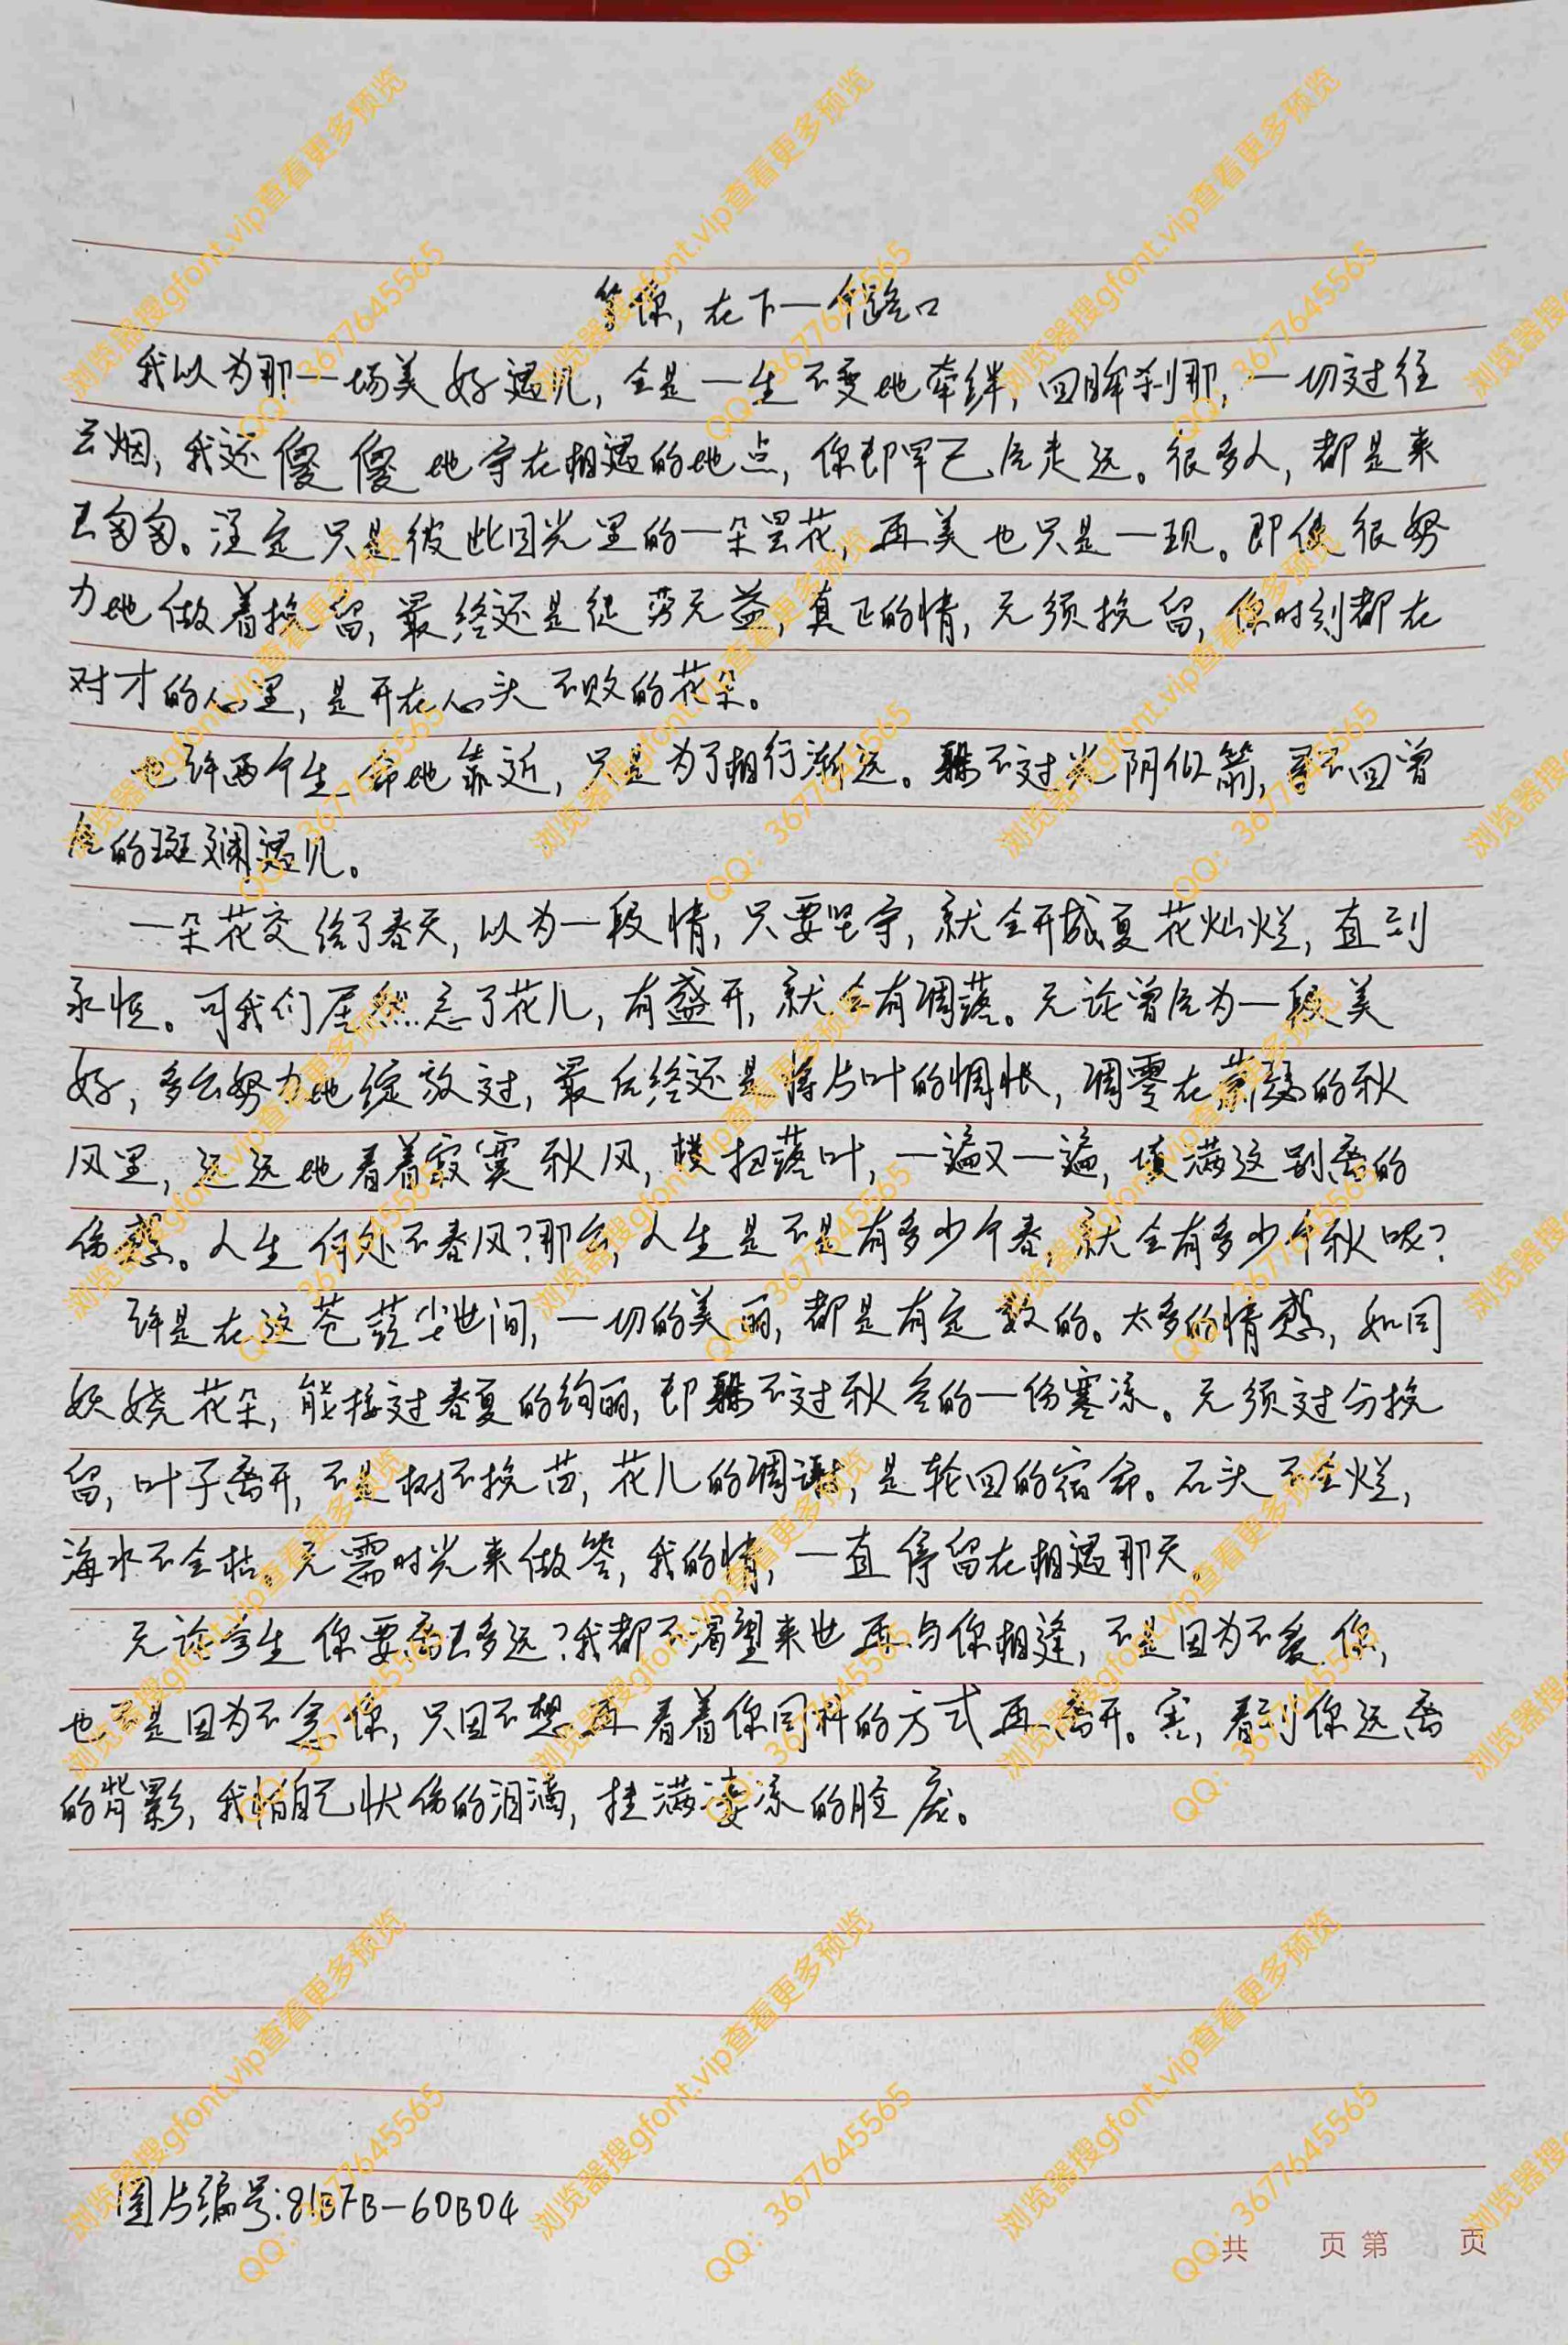 等你，在下一个路口
我以为那一场美好遇见，会是一生不变地牵绊，回眸刹那，一切过往
云烟，我还傻傻地守在相遇的地点，你却早已经走远。很多人，都是来
去匆匆。注定只是彼此目光里的一朵昙花，再美也只是一现。即使很努
力地做着挽留，最终还是徒劳无益，真正的情，无须挽留，你时刻都在
对才的心里，是开在心头不败的花朵。
也许两个生命地靠近，只是为了相行渐远。躲不过光阴似箭，寻不回曾
经的斑斓遇见。
一朵花交给了春天，以为一段情，只要坚守，就会开成夏花灿烂，直到
永恒。可我们居然忘了花儿，有盛开，就会有凋落。无论曾经为一段美
好，多么努力地绽放过，最后终还是将与叶的惆怅，凋零在萧瑟的秋
风里，远远地看着寂寞秋风，横扫落叶，一遍又一遍，填满这别离的
伤愁。人生何处不春风？那么，人生是不是有多少个春，就会有多少个秋呢？
许是在这苍茫尘世间，一切的美丽，都是有定数的。太多的情愁，如同
妖娆花朵，能接过春夏的绚丽，却躲不过秋冬的一伤寒凉。无须过分挽
留，叶子离开，不是树不挽留，花儿的凋谢，是轮回的宿命。石头不会烂，
海水不会枯。无需时光来做答，我的情，一直停留在相遇那天。
无论今生你要离去多远？我都不渴望来世再与你相逢，不是因为不爱你，
也不是因为不念你，只因不想再看着你同样的方式再离开。害，看到你远离
的背影，我怕自己忧伤的泪滴，挂满凄凉的脸庞。
图片编号：81B7B-60B04
共 页第 页
浏览器搜gfont.vip查看更多预览
QQ：3677645565